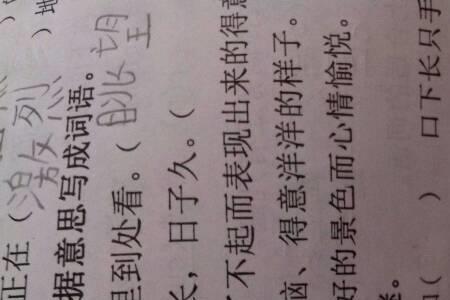 正在（激烈）地
据意思写成词语。
里到处看。（眺望
长，日子久。（
了不起而表现出来的得意
脑、得意洋洋的样子。
好的景色而心情愉悦。
（　　）　口下长只手